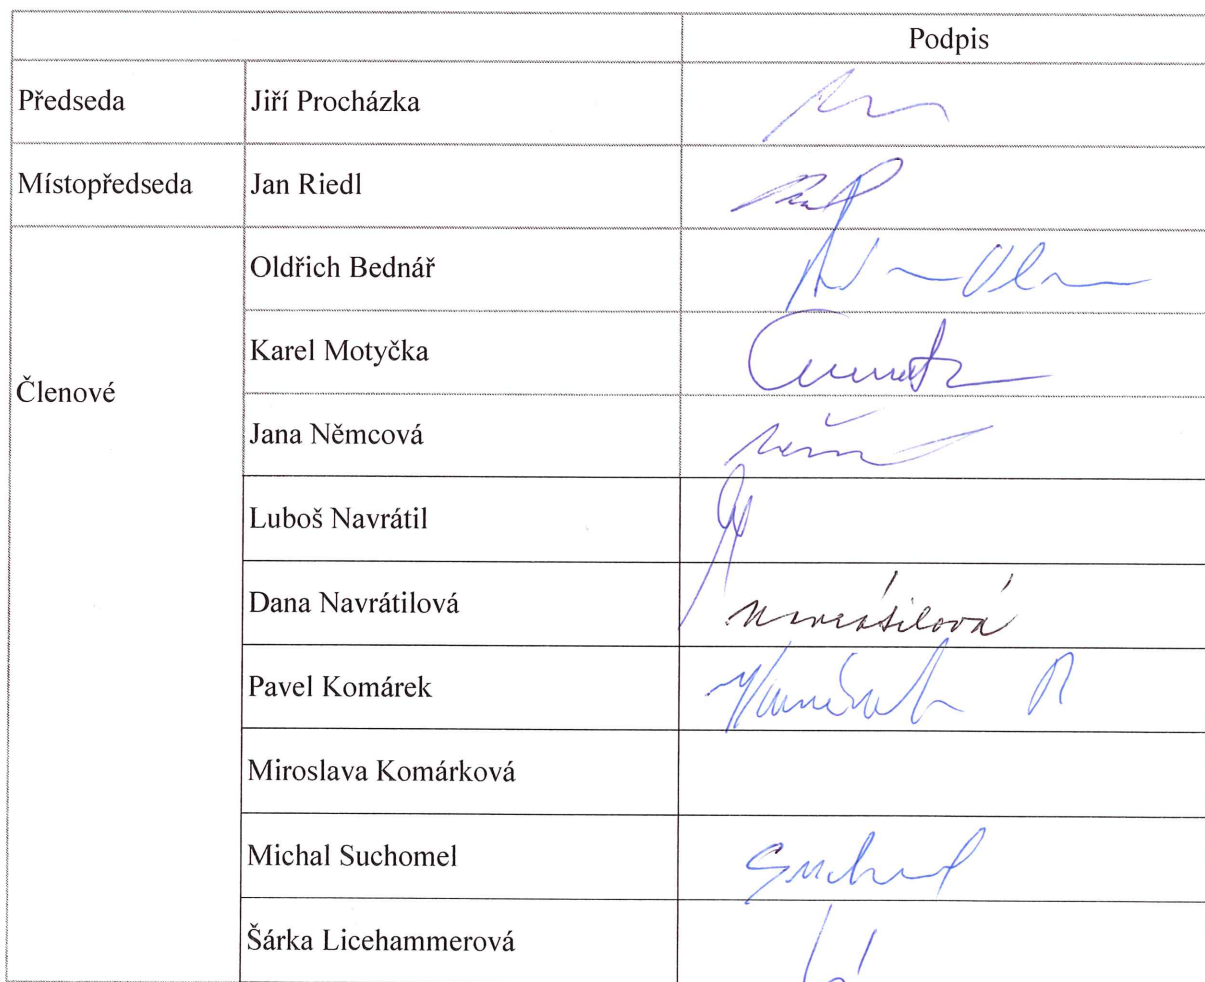 Podpis
Předseda Jiří Procházka
Místopředseda Jan Riedl
Členové
Oldřich Bednář
Karel Motyčka
Jana Němcová
Luboš Navrátil
Dana Navrátilová Navrátilová
Pavel Komárek
Miroslava Komárková
Michal Suchomel
Šárka Licehammerová